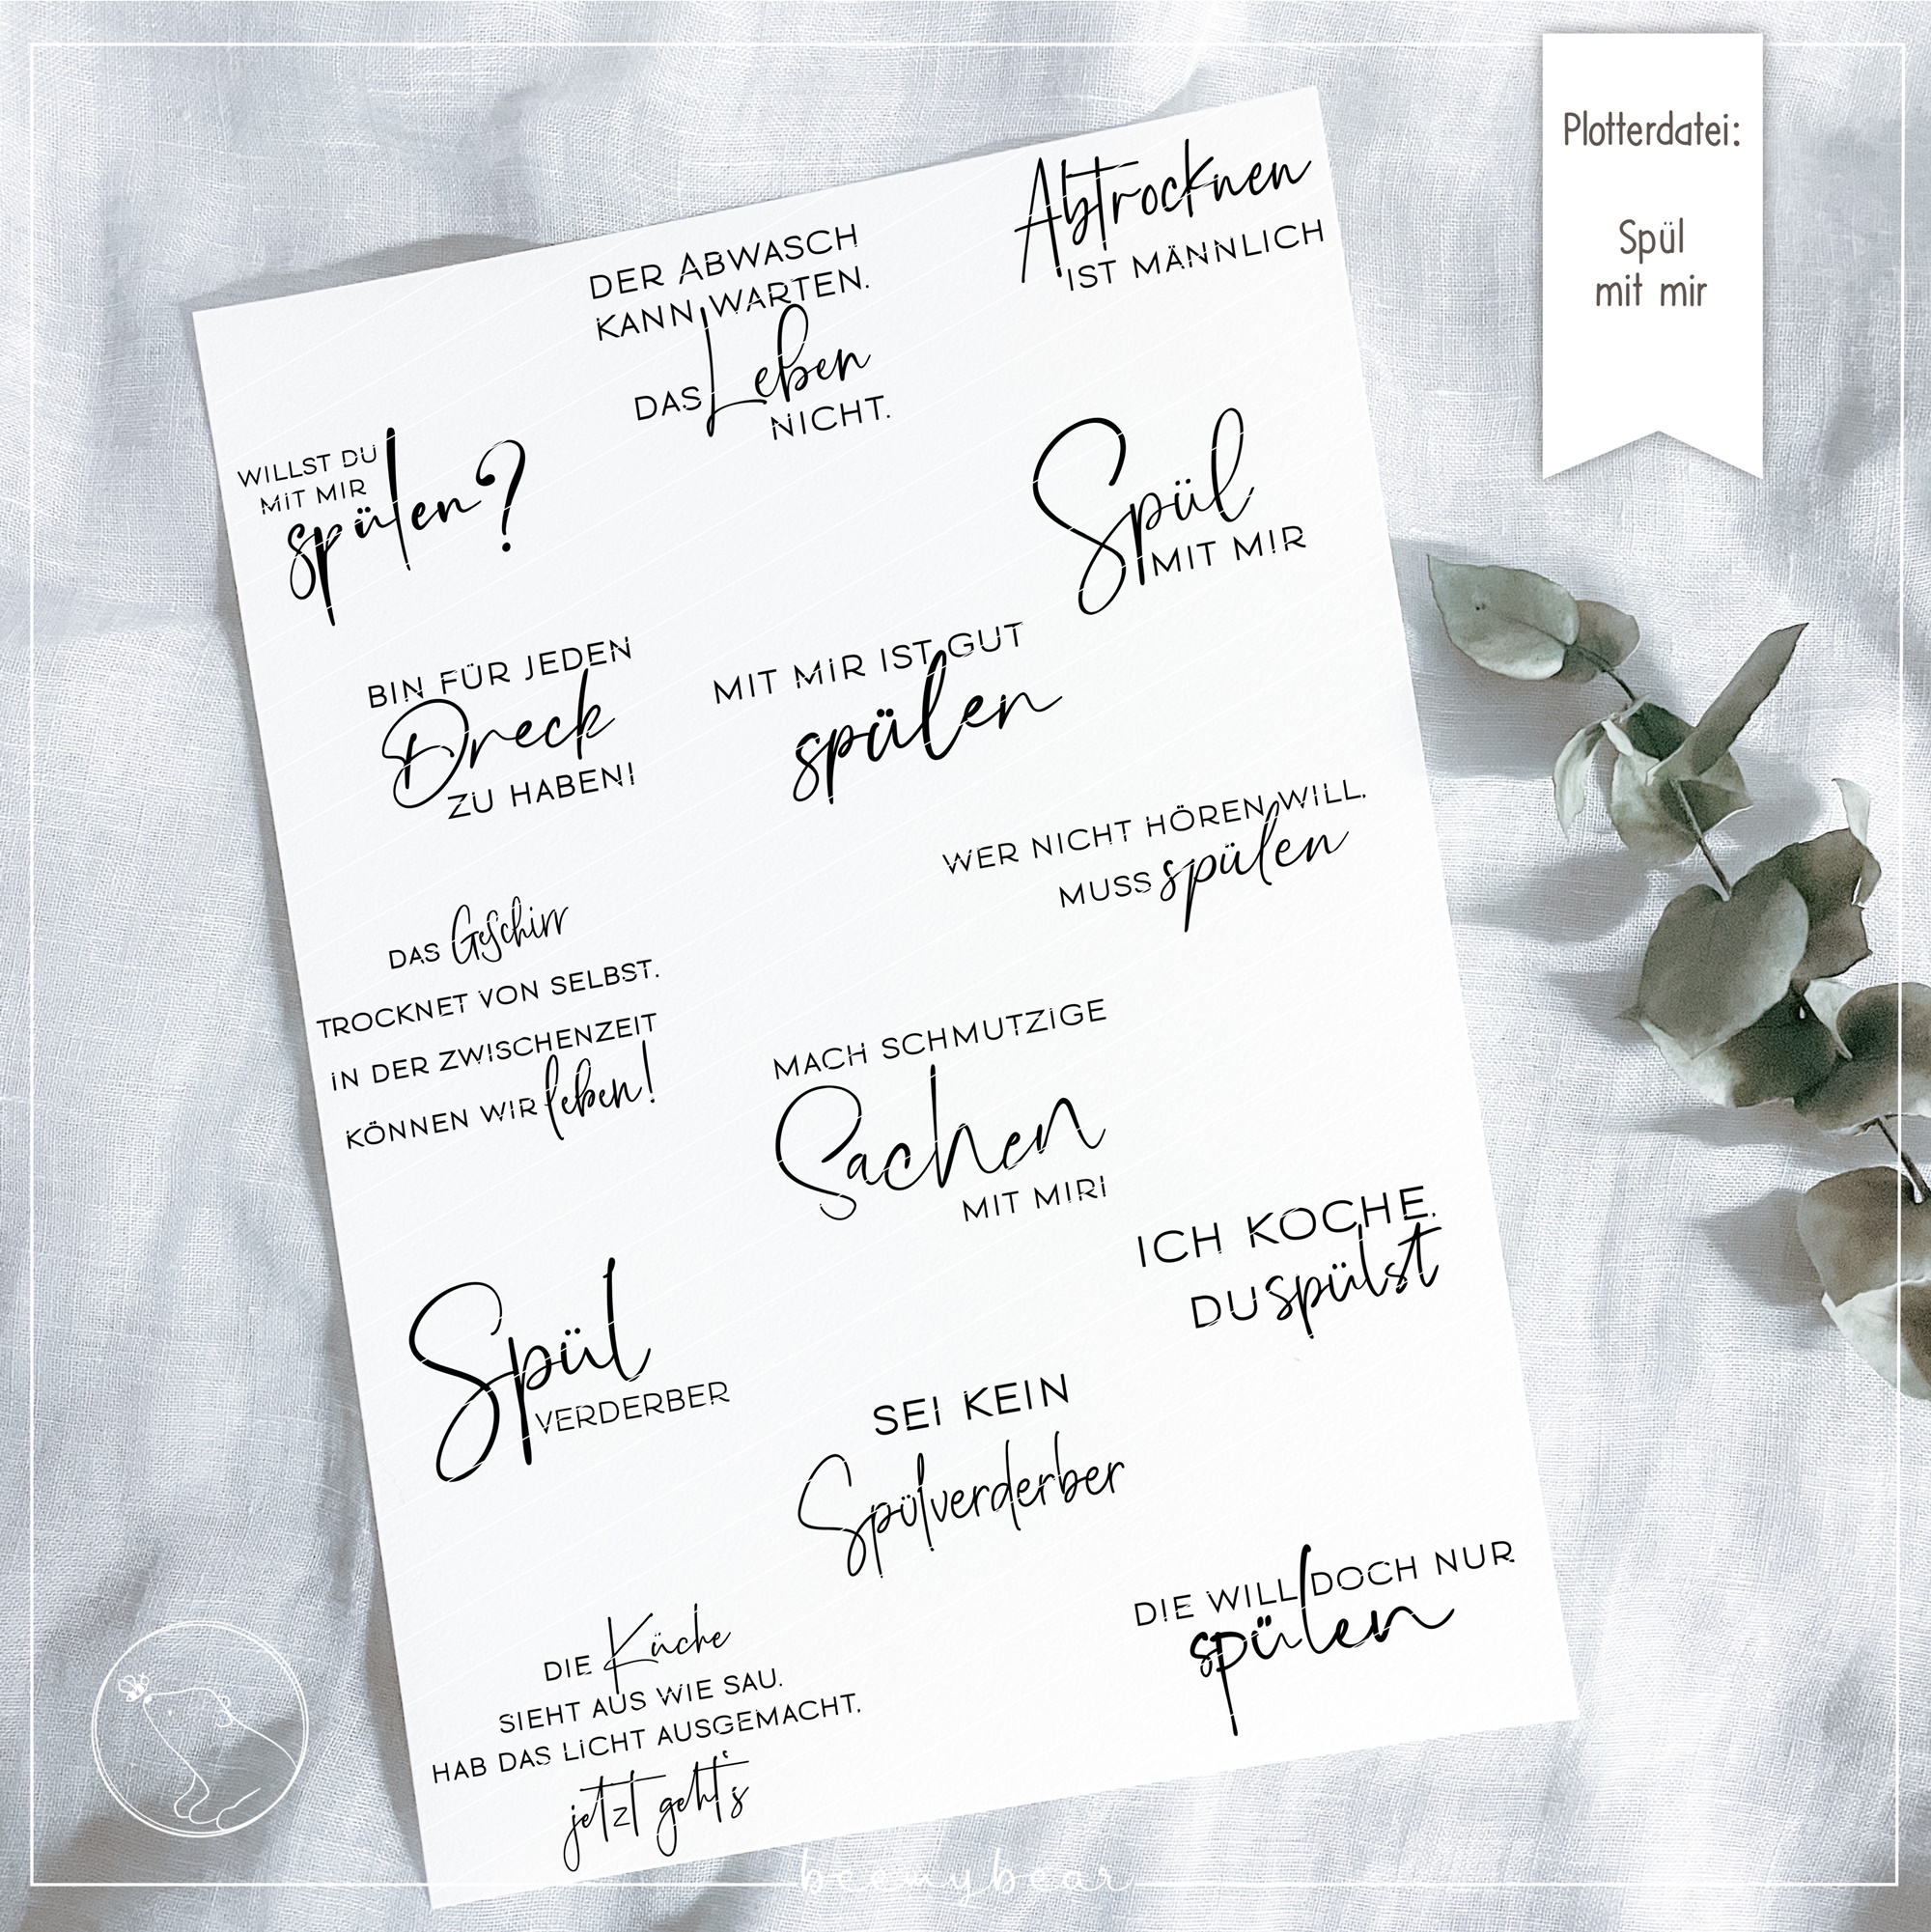 Plotterdatei:
Spül
mit mir
Abtrocknen
IST MÄNNLICH
DER ABWASCH
KANN WARTEN.
DAS Leben
NICHT.
WILLST DU
MIT MIR
spülen?
Spül
MIT MIR
BIN FÜR JEDEN
Dreck
ZU HABEN!
MIT MIR IST GUT
spülen
WER NICHT HÖREN WILL,
MUSS spülen
DAS Geschirr
TROCKNET VON SELBST.
IN DER ZWISCHENZEIT
KÖNNEN WIR leben!
MACH SCHMUTZIGE
Sachen
MIT MIR!
ICH KOCHE.
DU spülst
Spül
VERDERBER
SEI KEIN
Spülverderber
DIE WILL DOCH NUR
spülen
DIE Küche
SIEHT AUS WIE SAU.
HAB DAS LICHT AUSGEMACHT.
jetzt geht's
beemybear